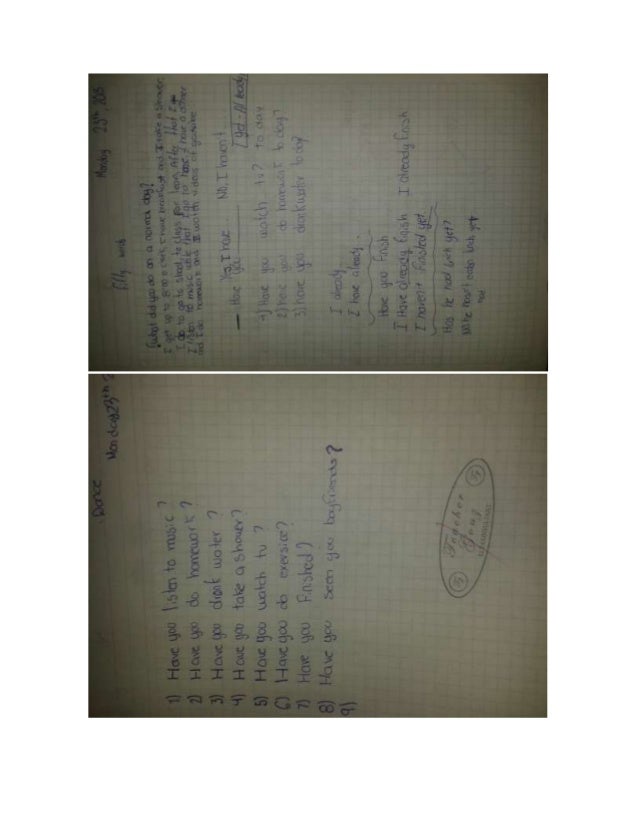 Monday 23th, 2015
Fifty words
What did you do on a normal day?
I get up to 8:00 o clock, I have breakfast and I take a shower.
I go to school, to class for learn, After that I
I listen to music while that I go to home, I have a other
and I do homework and I watch videos of
Yes, I have... No, I haven't
— Have you
1) Have you watch tv? to day
2) have you do homework to day?
3) have you drank water today?
I already
I have already.
Have you finish
I Have already finish I already finish
I haven't finisted yet.
Has he had lunch yet?
No he hasn't eaten lunch yet
had
Dance
Monday 23th
1) Have you listen to music?
2) Have you do homework?
3) Have you drank water?
4) Have you take a shower?
5) Have you watch tv?
6) Have you do exersice?
7) Have you finished?
8) Have you seen you boyfriends?
9)
Teacher
Doug